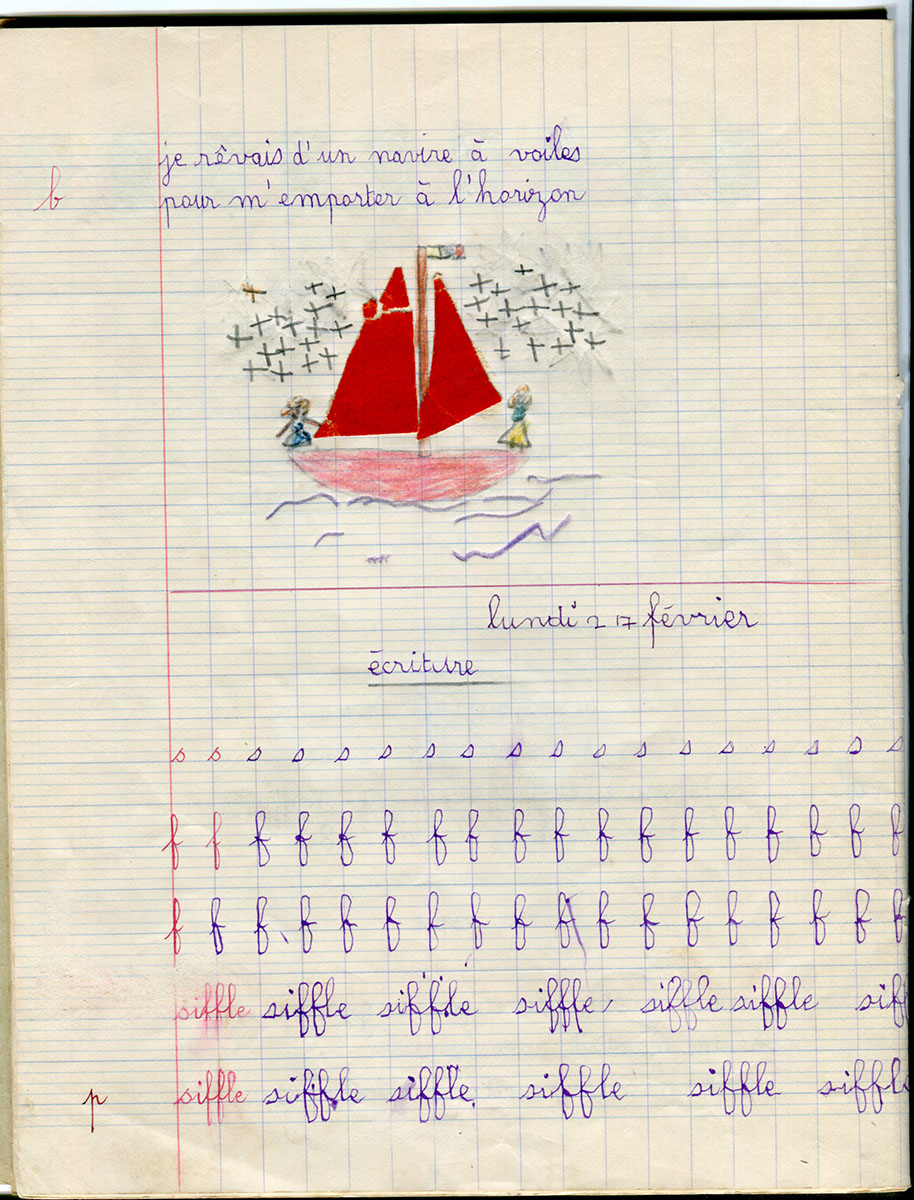 je rêvais d'un navire à voiles
b pour m'emporter à l'horizon
lundi 27 février
écriture
s s s s s s s s s s s s s s s s s s
f f f f f f f f f f f f f f f f f f
f f f f f f f f f f f f f f f f f f
siffle siffle siffle siffle siffle siffle sif
p siffle siffle siffle siffle siffle siffle